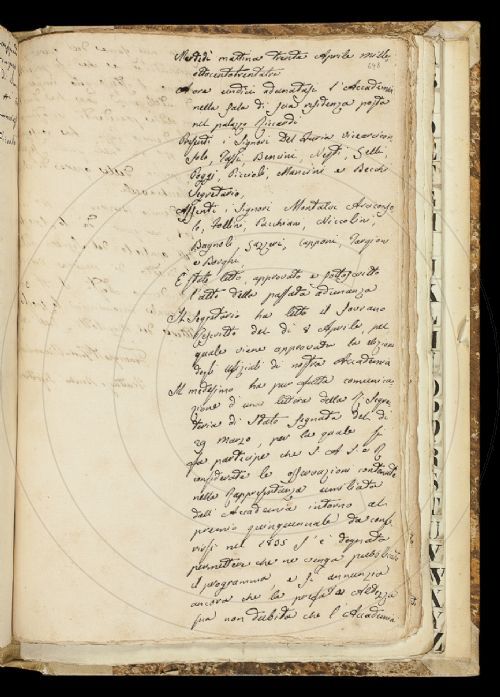 Martedì mattina trenta Aprile mille
ottocentotrentatre
648
A ora undici adunatasi l'Accademia
nella sala di sua residenza posta
nel palazzo Riccardi
Presenti i Signori Del Furia Vicearcicon
solo, Tassi, Bencini, Nesti, Gelli,
Poggi, Piccioli, Mancini e Becchi
Segretario,
Assenti i Signori Montalvi Arciconso
lo, Follini, Pacchiani, Niccolini,
Bagnoli, Gazzeri, Capponi, Targioni
e Borghi
È stato letto, approvato e sottoscritto
l'atto della passata adunanza
Il Segretario ha letto il Sovrano
Rescritto del dì 8 Aprile, pel
quale viene approvata la elezione
degli Ufiziali di nostra Accademia
Il medesimo ha pur fatta comunica
zione d'una lettera della R. Segre
teria di Stato segnata del dì
29 marzo, per la quale si
fa partecipe che S. A. I. e R.
considerate le osservazioni contenute
nella Rappresentanza umiliata
dall'Accademia intorno al
premio quinquennale da confe
rirsi nel 1835 s'è degnata
permettere che ne venga pubblicato
il programma e si annunzia
ancora che la prefata Altezza
sua non dubita che l'Accademia
E
F
G
H
I
J
K
L
O
P
Q
R
S
T
U
V
W
X
Y
Z